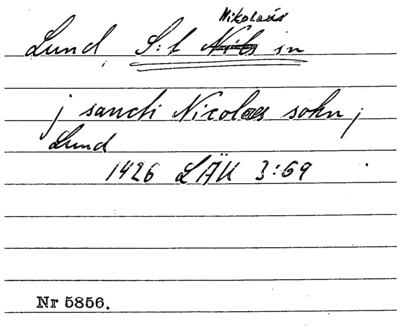 Nikolaus
Lund, S:t Nils in
j sancti Nicolaes sokn j
Lund
1426 LÄU 3:69
Nr 5856.